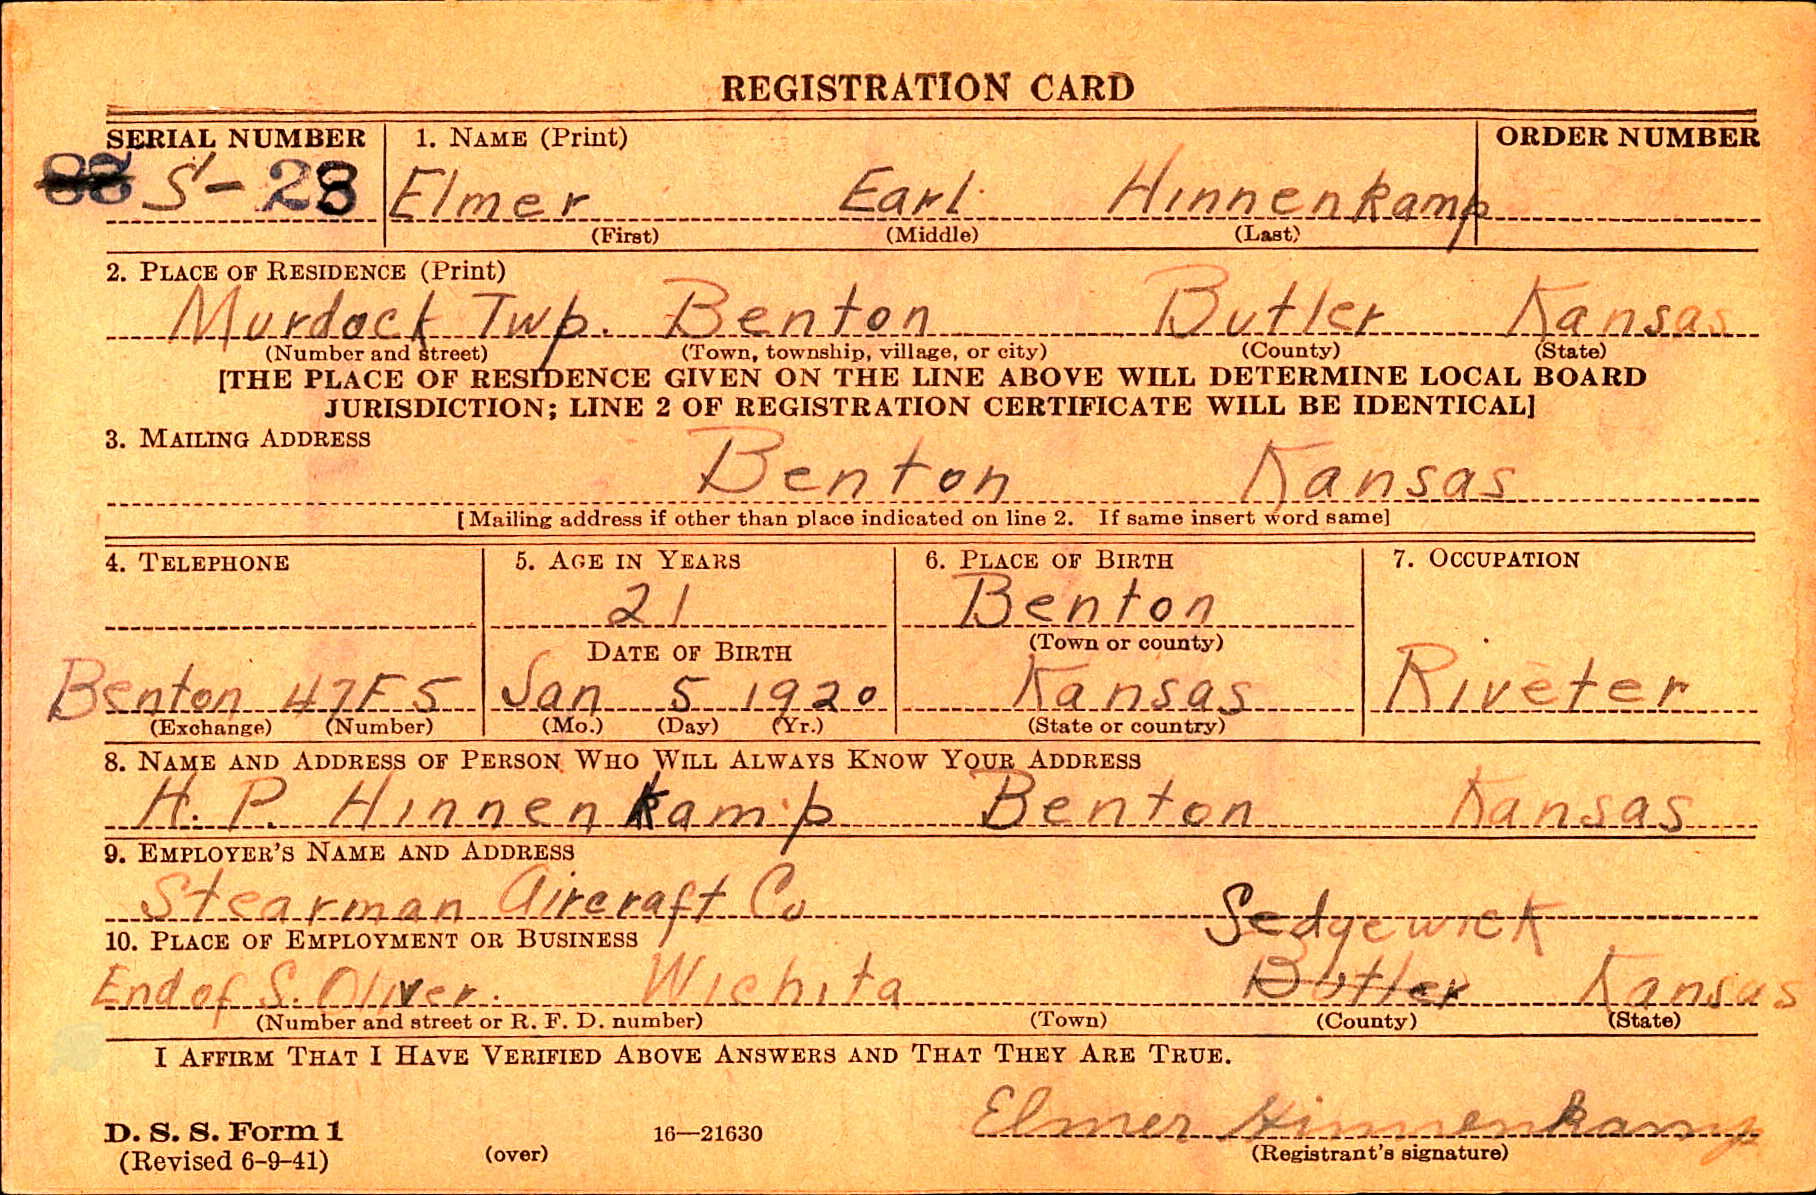 REGISTRATION CARD
SERIAL NUMBER 1. NAME (Print) ORDER NUMBER
S-28 Elmer Earl Hinnenkamp
(First) (Middle) (Last)
2. PLACE OF RESIDENCE (Print)
Murdock Twp. Benton Butler Kansas
(Number and street) (Town, township, village, or city) (County) (State)
[THE PLACE OF RESIDENCE GIVEN ON THE LINE ABOVE WILL DETERMINE LOCAL BOARD
JURISDICTION; LINE 2 OF REGISTRATION CERTIFICATE WILL BE IDENTICAL]
3. MAILING ADDRESS
Benton Kansas
[Mailing address if other than place indicated on line 2. If same insert word same]
4. TELEPHONE 5. AGE IN YEARS 6. PLACE OF BIRTH 7. OCCUPATION
21 Benton
DATE OF BIRTH (Town or county)
Benton 47F5 Jan 5 1920 Kansas Riveter
(Exchange) (Number) (Mo.) (Day) (Yr.) (State or country)
8. NAME AND ADDRESS OF PERSON WHO WILL ALWAYS KNOW YOUR ADDRESS
H. P. Hinnenkamp Benton Kansas
9. EMPLOYER'S NAME AND ADDRESS
Stearman Aircraft Co
Sedgewick
10. PLACE OF EMPLOYMENT OR BUSINESS
End of S. Oliver. Wichita Butler Kansas
(Number and street or R. F. D. number) (Town) (County) (State)
I AFFIRM THAT I HAVE VERIFIED ABOVE ANSWERS AND THAT THEY ARE TRUE.
Elmer Hinnenkamp
D. S. S. Form 1 16—21630
(Revised 6-9-41) (over) (Registrant's signature)